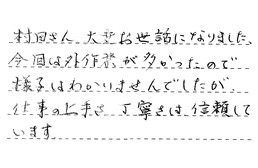 村田さん 大変お世話になりました、
今回は外作業が多かったので
様子はわかりませんでしたが、
仕事の上手さ 丁寧さは信頼して
います